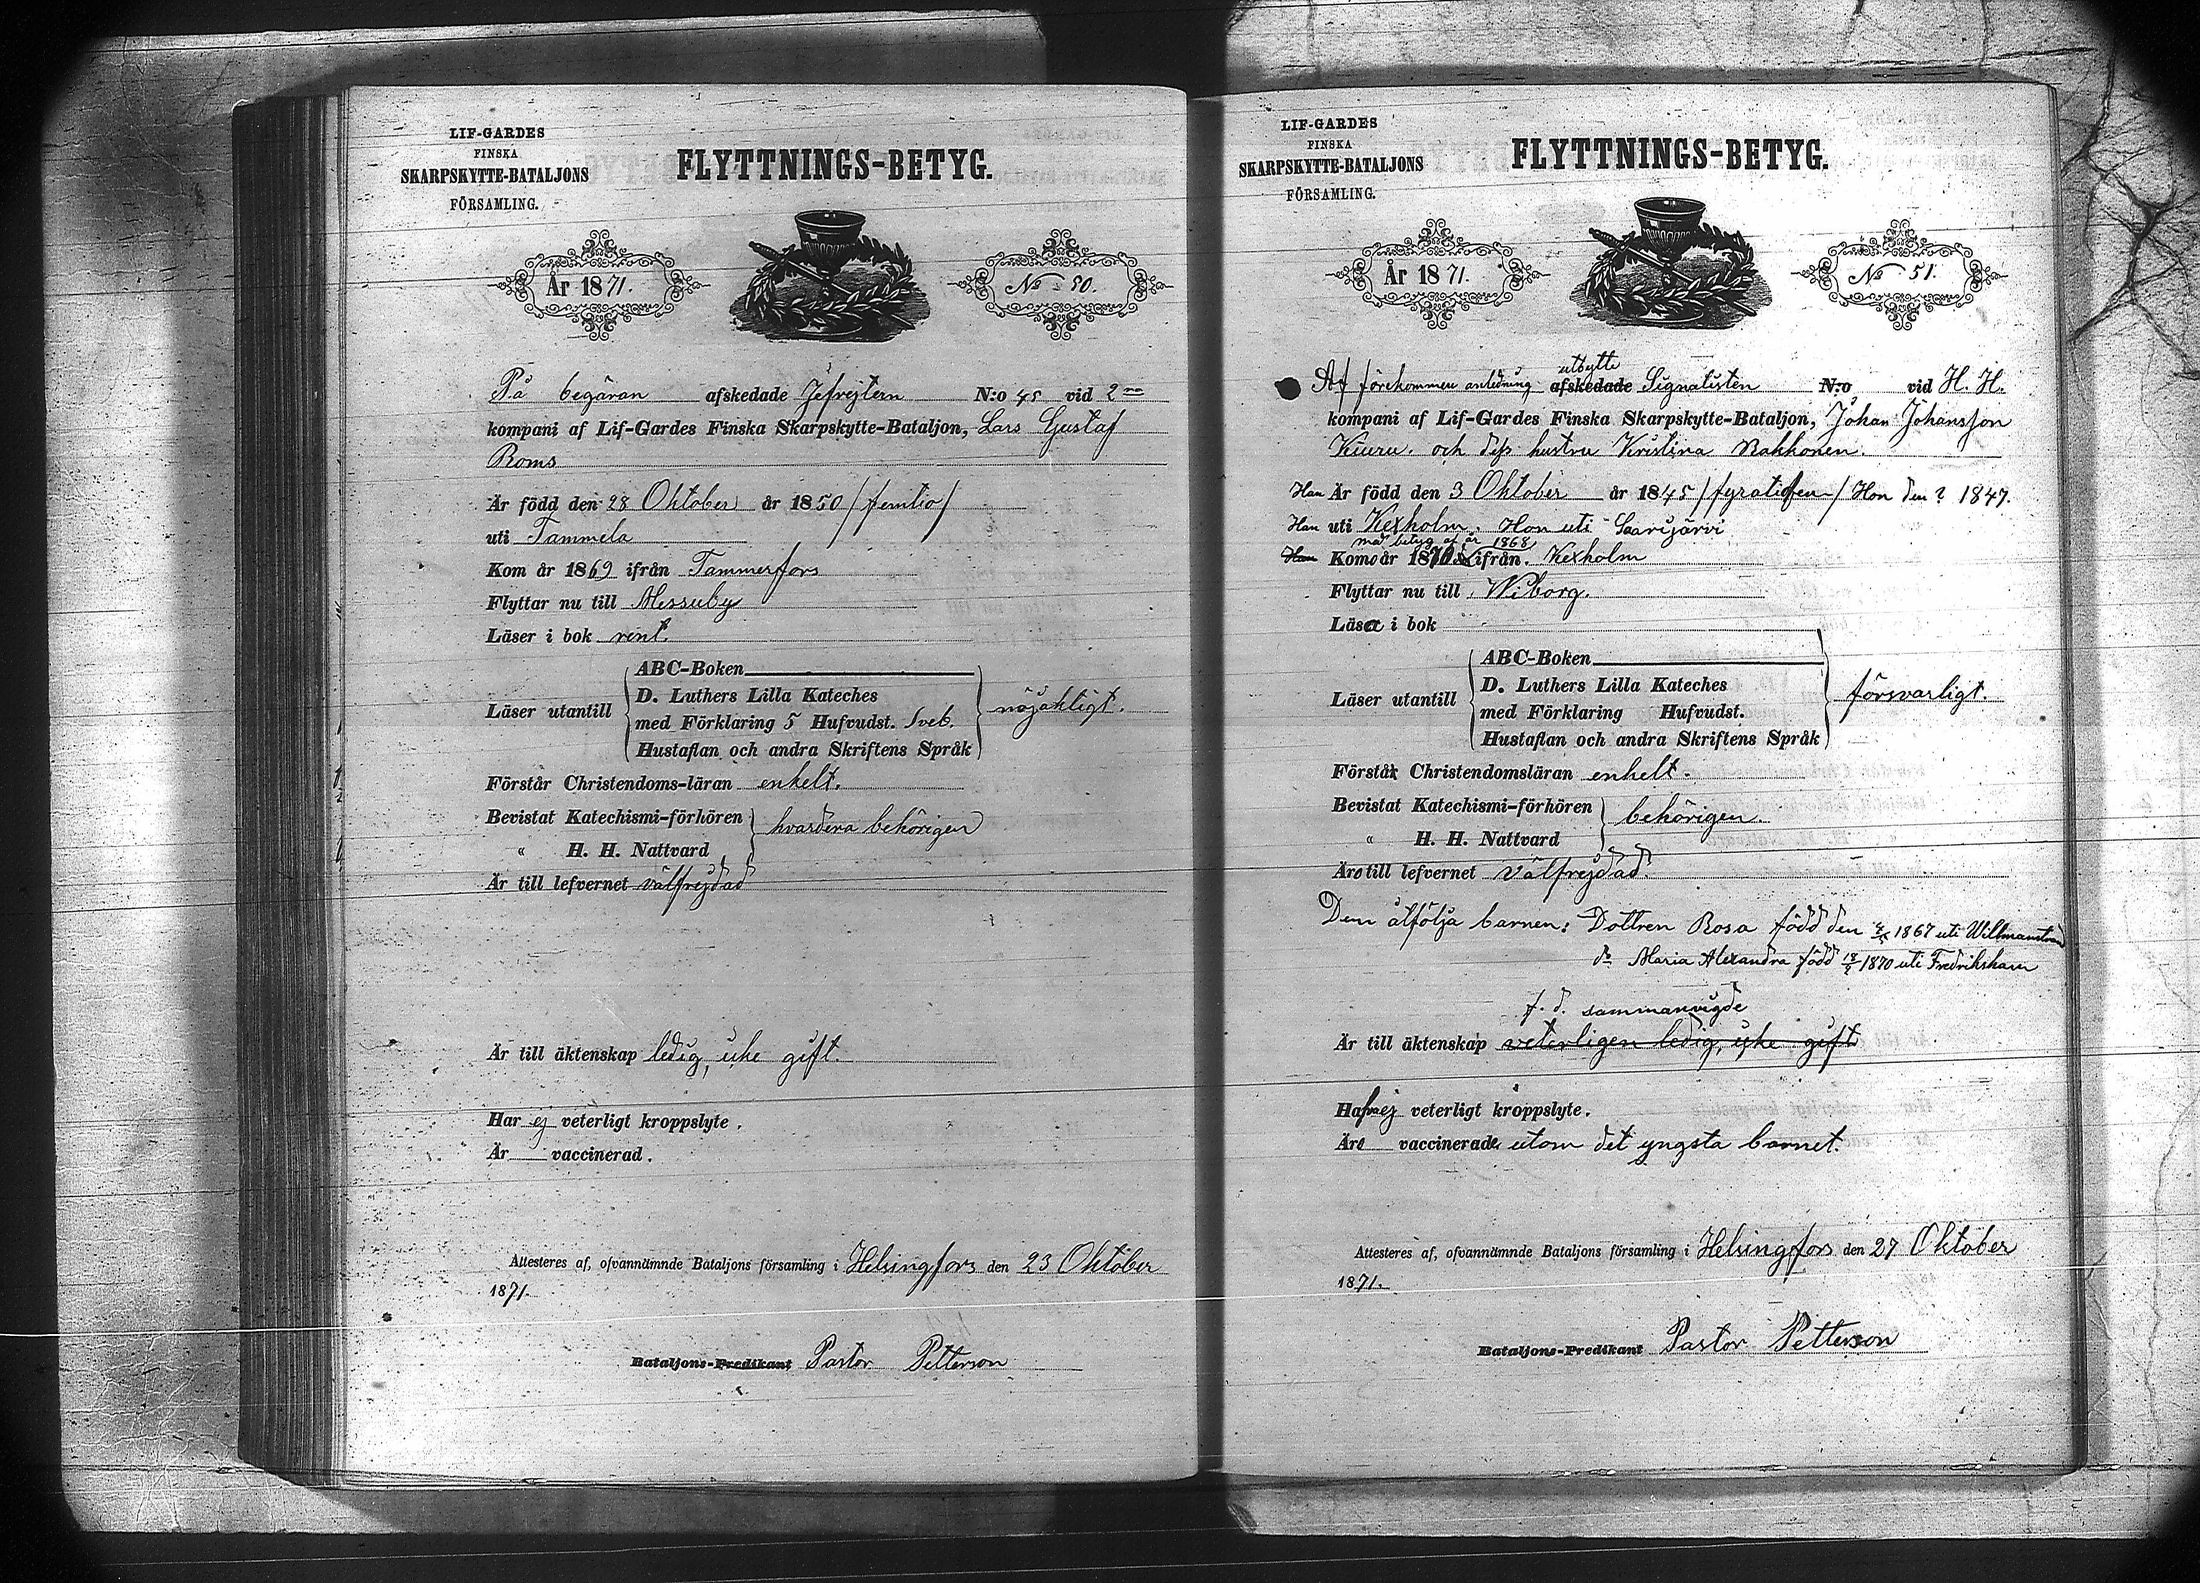 LIF-GARDES
FINSKA
SKARPSKYTTE-BATALJONS
FÖRSAMLING.
FLYTTNINGS-BETYG.
År 1871.
No 50.
På begäran afskedade Jefrejtern N:o 45 vid 2
kompani af Lif-Gardes Finska Skarpskytte-Bataljon, Lars Gustaf
Roms
Är född den 28 Oktober år 1850 /femtio/
uti Tammela
Kom år 1869 ifrån Tammerfors
Flyttar nu till Messuby
Läser i bok rent.
Läser utantill
ABC-Boken
D. Luthers Lilla Kateches
med Förklaring 5 Hufvudst. Sveb.
Hustaflan och andra Skriftens Språk
nöjaktigt.
Förstår Christendoms-läran enkelt.
Bevistat Katechismi-förhören
" H. H. Nattvard
hvardera behörigen
Är till lefvernet välfrejdad
Är till äktenskap ledig, icke gift.
Har ej veterligt kroppslyte.
Är vaccinerad.
Attesteres af, ofvannämnde Bataljons församling i Helsingfors den 23 Oktober
1871.
Bataljons-Predikant Pastor Petterson
LIF-GARDES
FINSKA
SKARPSKYTTE-BATALJONS
FÖRSAMLING.
FLYTTNINGS-BETYG.
År 1871.
No 51.
utbytte
Af förekommen anledning afskedade Signalisten N:o vid H. H.
kompani af Lif-Gardes Finska Skarpskytte-Bataljon, Johan Johansson
Kiuru. och dess hustru Kristina Rakkonen.
Han Är född den 3 Oktober år 1845 /fyratiofem/ Hon den ? 1847.
Han uti Kexholm. Hon uti Saarijärvi
med betyg af år 1868
Kom år 1870 ifrån Kexholm
Flyttar nu till Wiborg.
Läsa i bok
Läser utantill
ABC-Boken
D. Luthers Lilla Kateches
med Förklaring Hufvudst.
Hustaflan och andra Skriftens Språk
försvarligt.
Förstå Christendomsläran enkelt.
Bevistat Katechismi-förhören
" H. H. Nattvard
behörigen.
Äro till lefvernet välfrejdad.
Dem åtfölja barnen: Dottren Rosa född den 1867 uti Willmanstrand
do Maria Alexandra född 1870 uti Fredrikshamn
f. d. sammanvigde
Är till äktenskap veterligen ledig, icke gift
Hafva ej veterligt kroppslyte.
Äro vaccinerade utom det yngsta barnet.
Attesteres af, ofvannämnde Bataljons församling i Helsingfors den 27 Oktober
1871.
Bataljons-Predikant Pastor Petterson